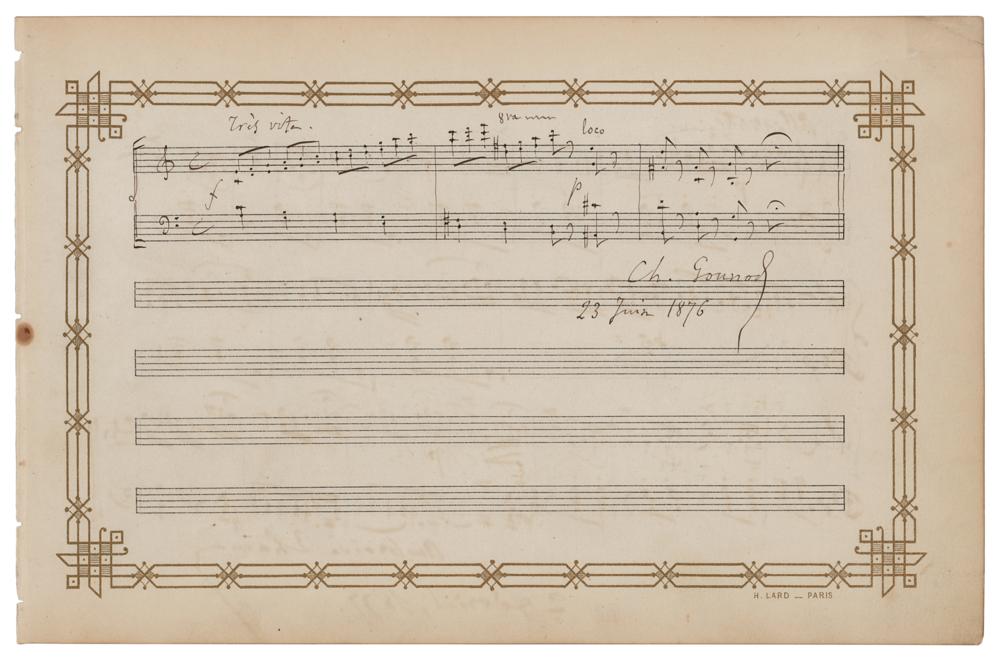 Très vite.
8va
loco
f
p
Ch. Gounod
23 Juin 1876
H. LARD — PARIS